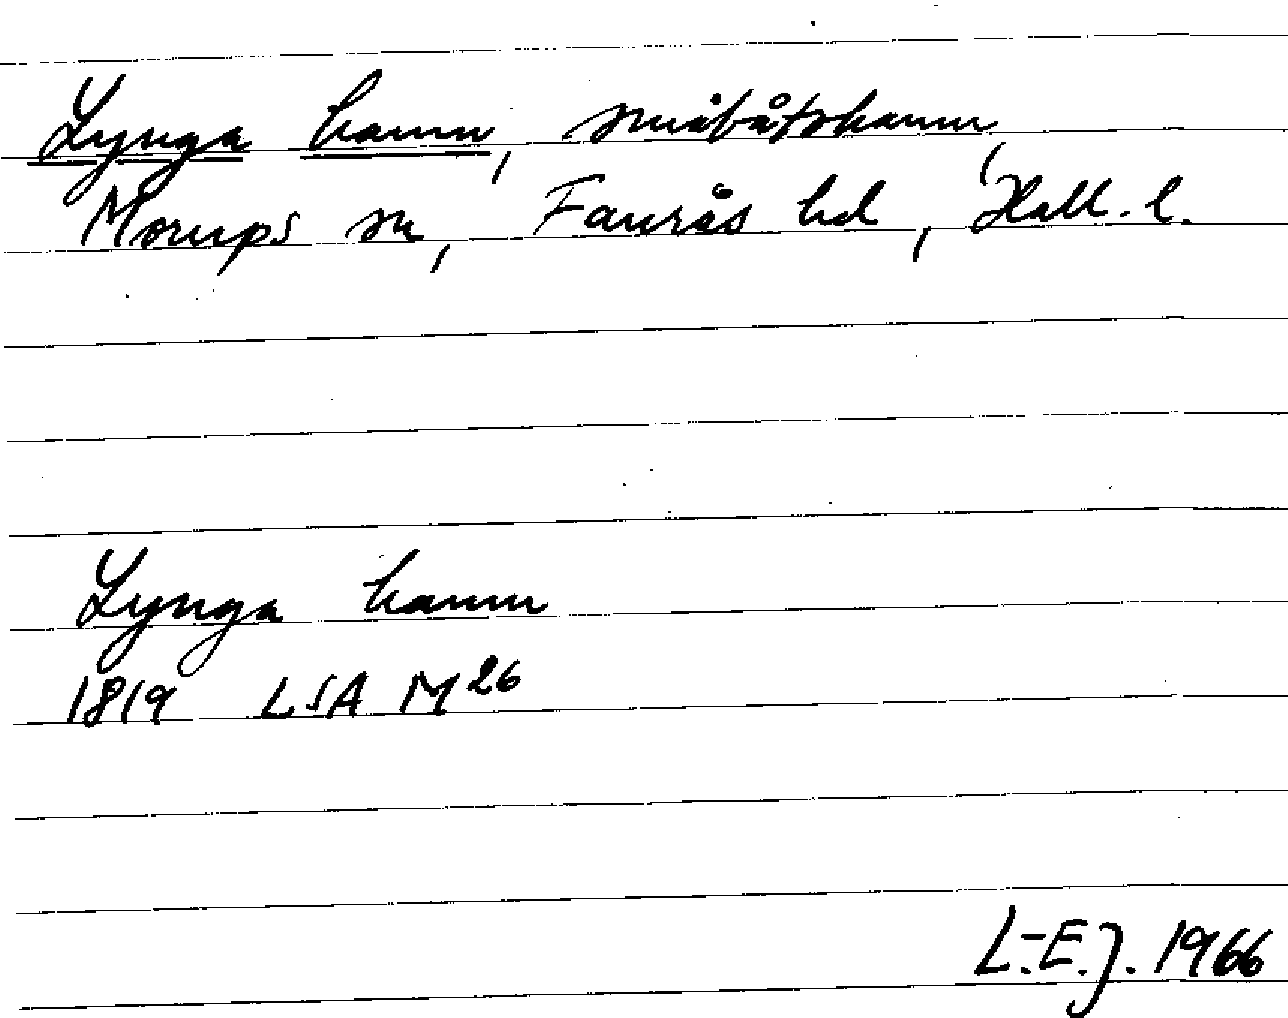 Lynga hamn, småbåtshamn,
Morups sn, Faurås hd, Hall. l.
Lynga hamn
1819 LSA M26
L.-E.J. 1966